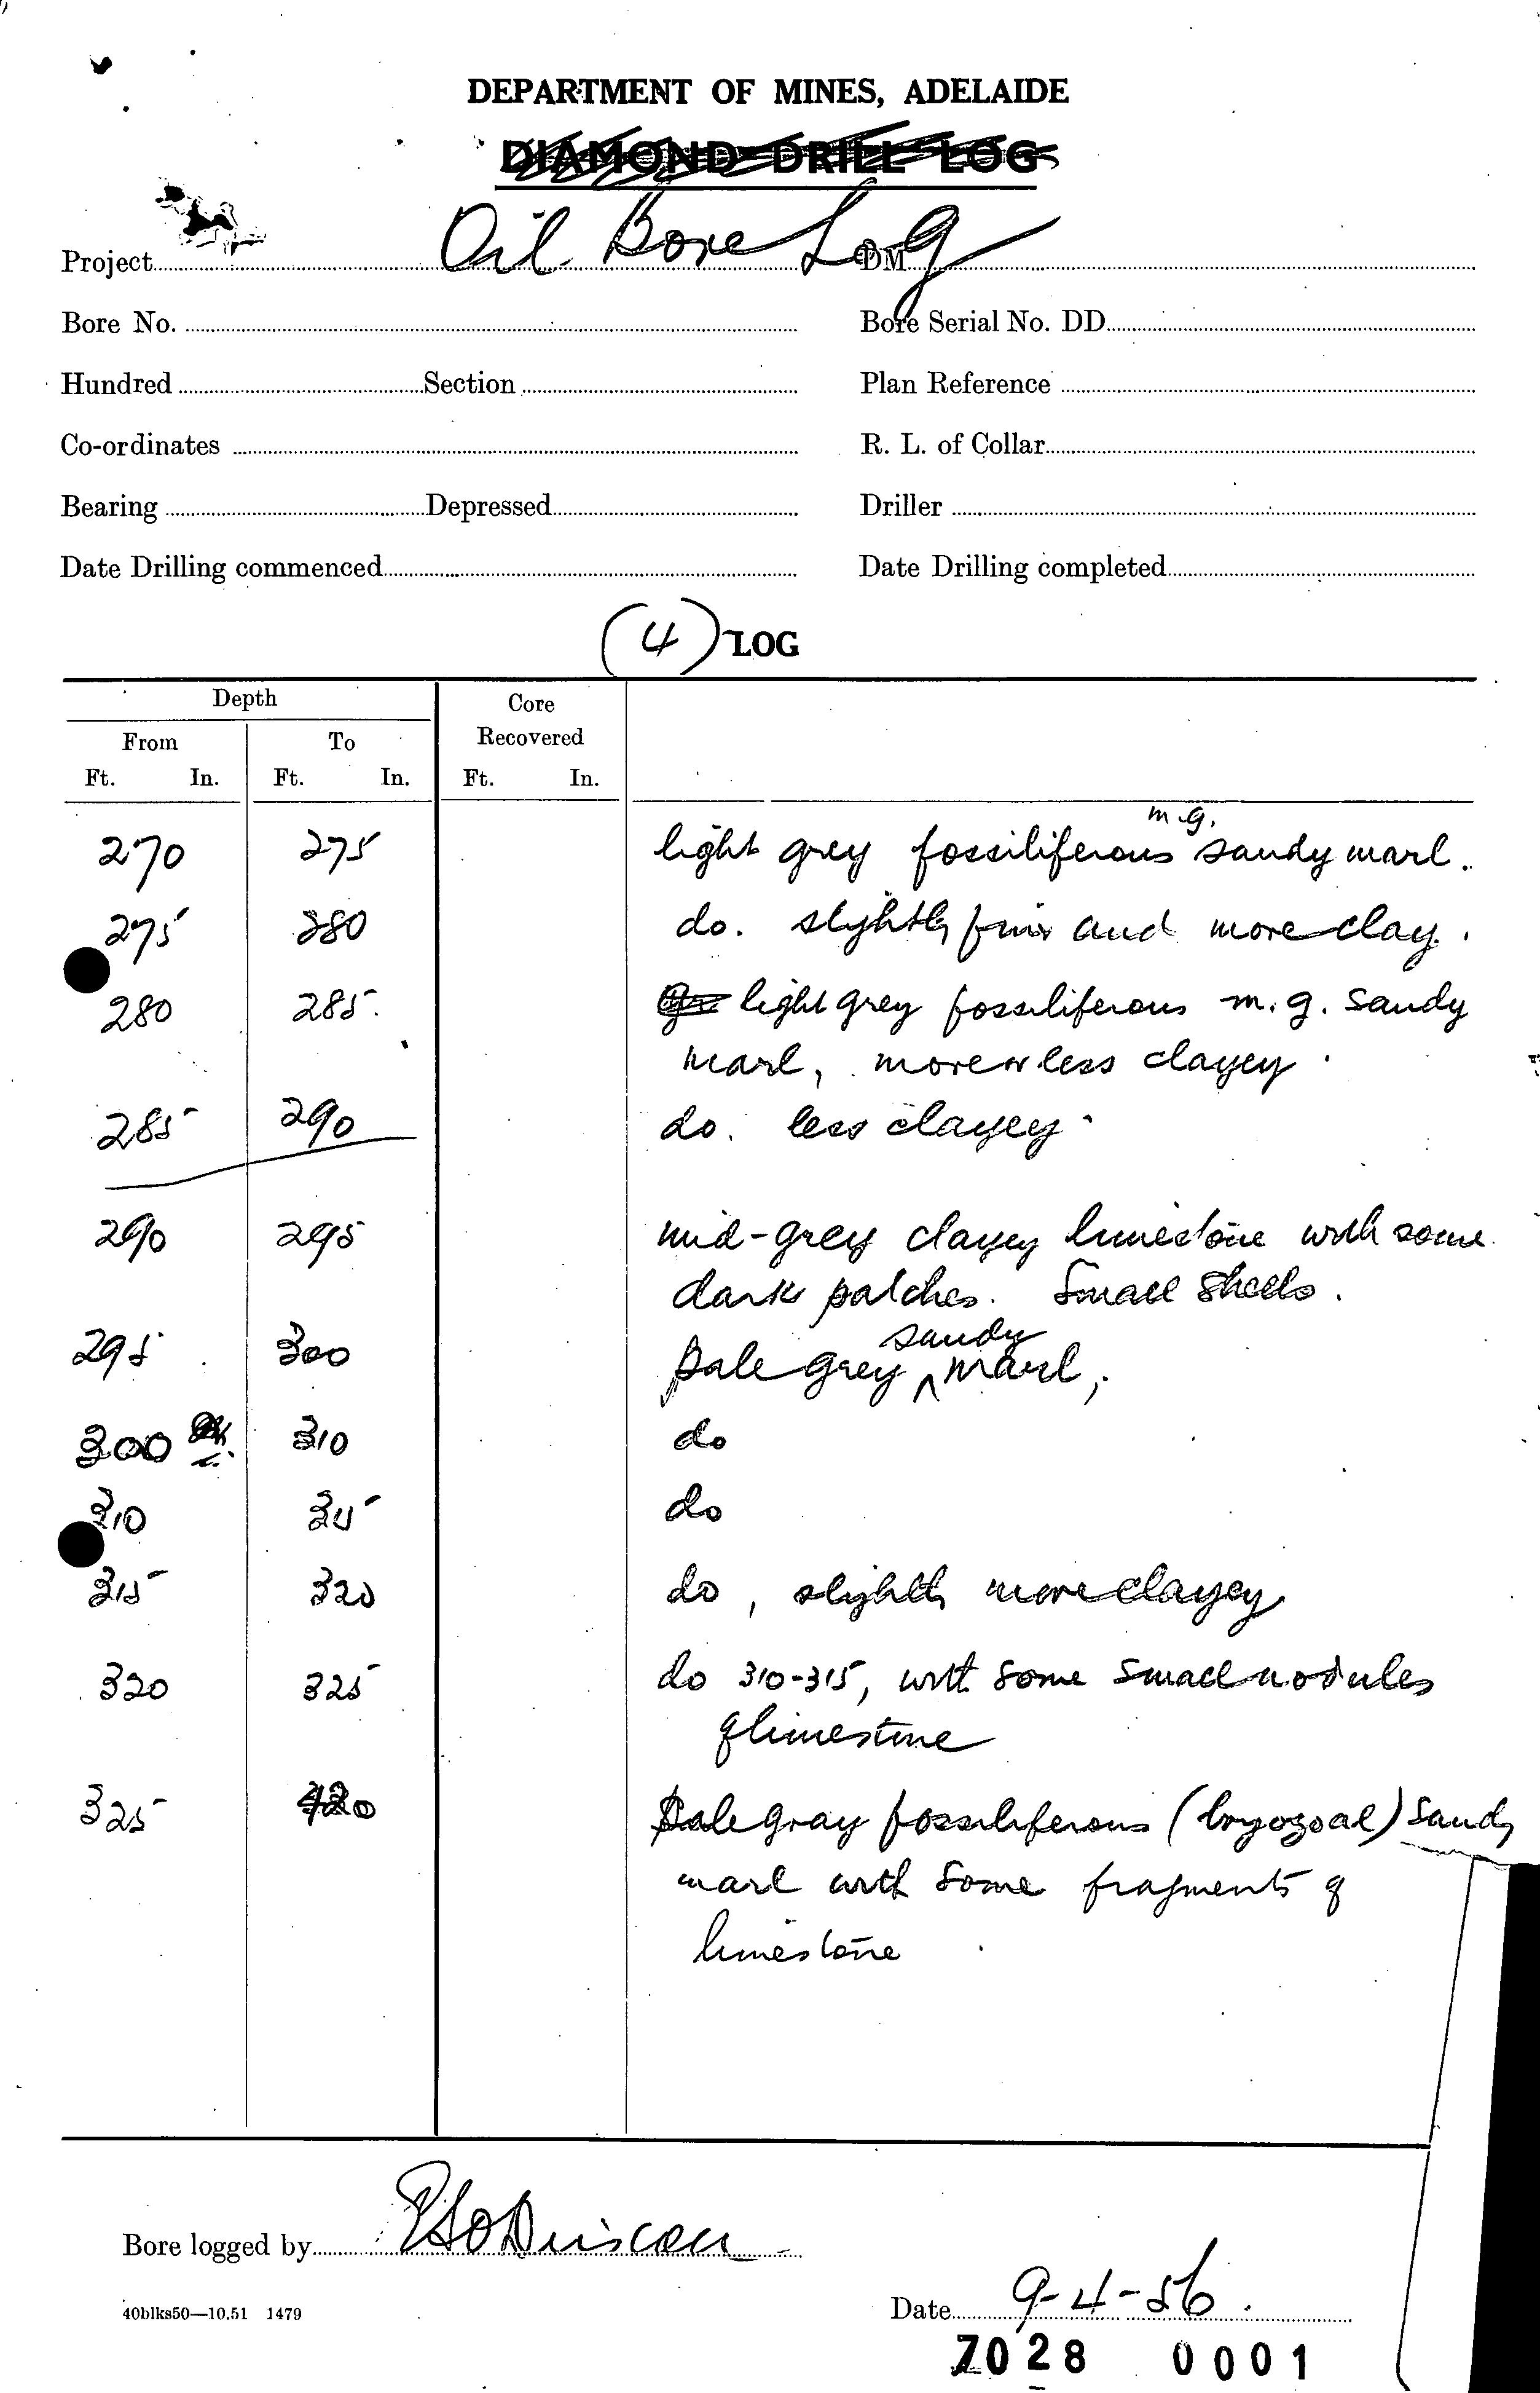 DEPARTMENT OF MINES, ADELAIDE
DIAMOND DRILL LOG
Oil Bore Log
Project DM
Bore No. Bore Serial No. DD
Hundred Section Plan Reference
Co-ordinates R. L. of Collar
Bearing Depressed Driller
Date Drilling commenced Date Drilling completed
(4) LOG
Depth Core
From To Recovered
Ft. In. Ft. In. Ft. In.
m.g.
270 275 light grey fossiliferous sandy marl.
275 280 do. slightly finer and more clay.
280 285. light grey fossiliferous m.g. sandy
marl, more or less clayey.
285 290 do. less clayey.
290 295 mid-grey clayey limestone with some
dark patches. Small shells.
sandy
295 300 pale grey ^ marl,
300 310 do
310 315 do
315 320 do, slightly more clayey
320 325 do 310-315, with some small nodules
of limestone
325 Pale gray fossiliferous (bryozoal) sandy
marl with some fragments of
limestone
Bore logged by
40blks50—10.51 1479
Date 9-4-56.
7028 0001